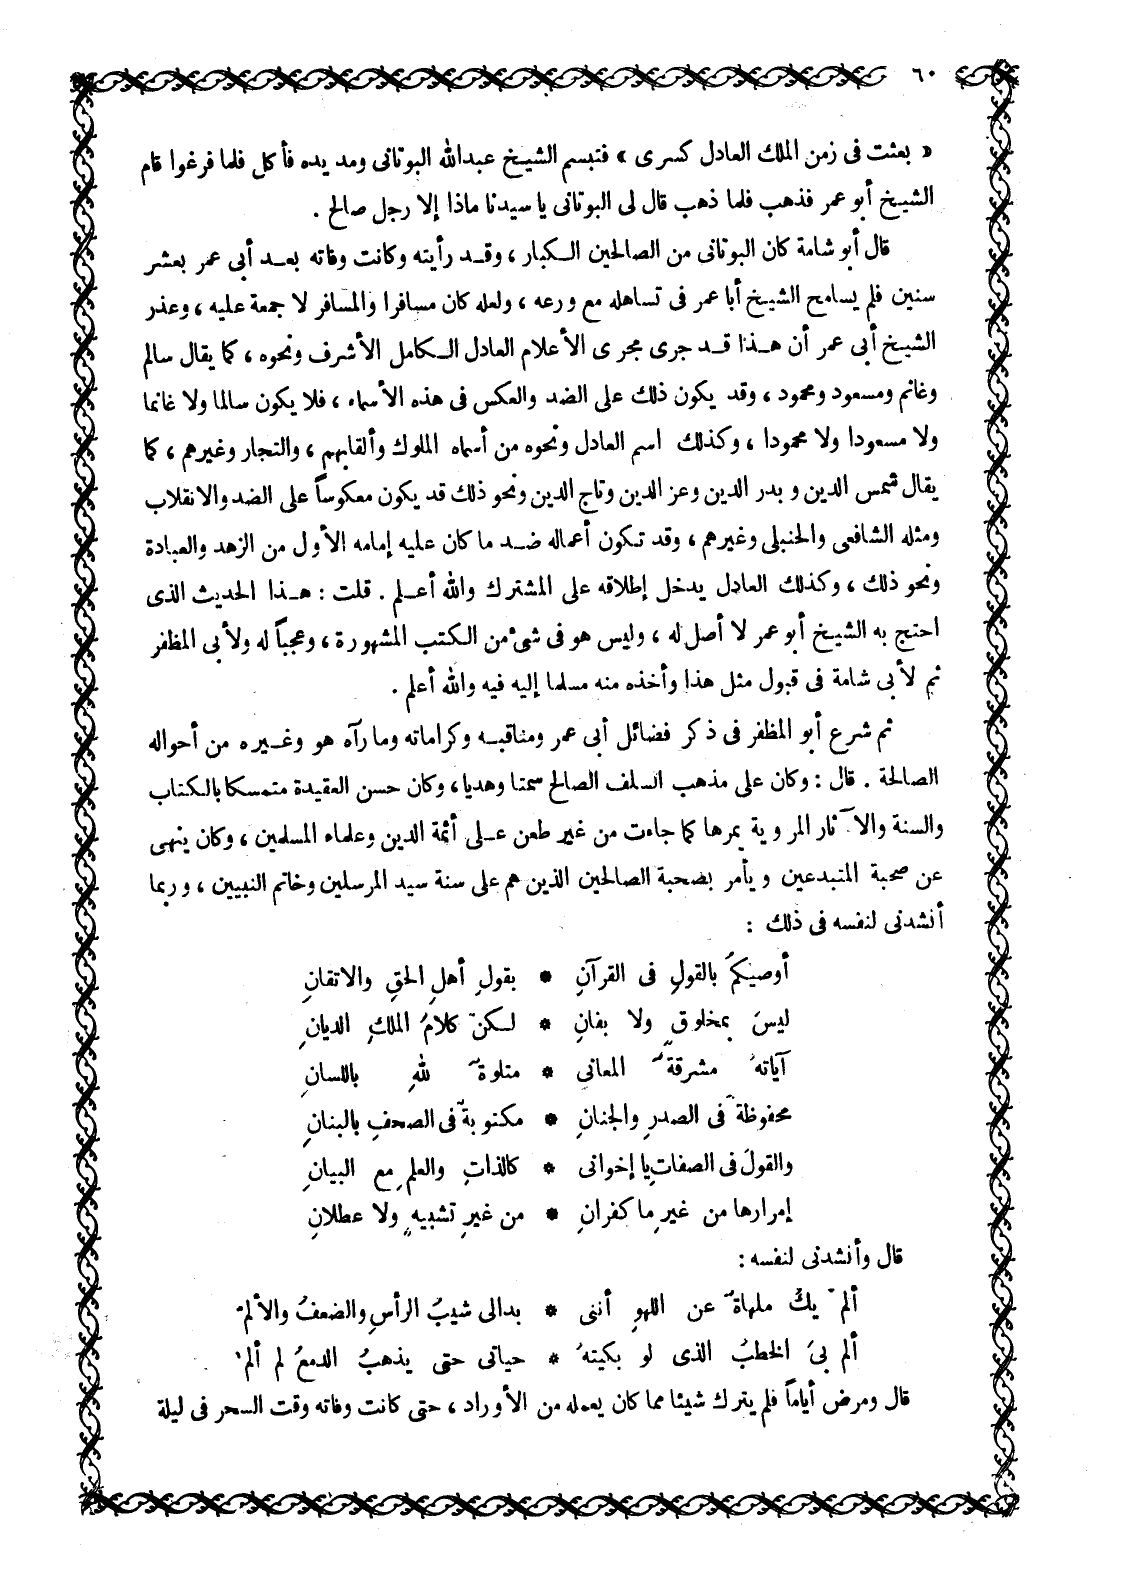 ٦٠
« بعثت فى زمن الملك العادل كسرى » فتبسم الشيخ عبدالله البوتانى ومد يده فأكل فلما فرغوا قام
الشيخ أبو عمر فذهب فلما ذهب قال لى البوتانى يا سيدنا ماذا إلا رجل صالح .
قال أبو شامة كان البوتانى من الصالحين الكبار ، وقد رأيته وكانت وفاته بعد أبى عمر بعشر
سنين فلم يسامح الشيخ أبا عمر فى تساهله مع ورعه ، ولعله كان مسافرا والمسافر لا جمعة عليه ، وعذر
الشيخ أبى عمر أن هذا قد جرى مجرى الأعلام العادل الكامل الأشرف ونحوه ، كما يقال سالم
وغانم ومسعود ومحمود ، وقد يكون ذلك على الضد والعكس فى هذه الأسماء ، فلا يكون سالما ولا غانما
ولا مسعودا ولا محمودا ، وكذلك اسم العادل ونحوه من أسماء الملوك وألقابهم ، والتجار وغيرهم ، كما
يقال شمس الدين وبدر الدين وعز الدين وتاج الدين ونحو ذلك قد يكون معكوساً على الضد والانقلاب
ومثله الشافعى والحنبلى وغيرهم ، وقد تكون أعماله ضد ما كان عليه إمامه الأول من الزهد والعبادة
ونحو ذلك ، وكذلك العادل يدخل إطلاقه على المشترك والله أعلم . قلت : هذا الحديث الذى
احتج به الشيخ أبو عمر لا أصل له ، وليس هو فى شئ من الكتب المشهورة ، وعجباً له ولأبى المظفر
ثم لأبى شامة فى قبول مثل هذا وأخذه منه مسلما إليه فيه والله أعلم .
ثم شرع أبو المظفر فى ذكر فضائل أبى عمر ومناقبه وكراماته وما رآه هو وغيره من أحواله
الصالحة . قال : وكان على مذهب السلف الصالح سمتا وهديا ، وكان حسن العقيدة متمسكا بالكتاب
والسنة والآثار المروية يمرها كما جاءت من غير طعن على أئمة الدين وعلماء المسلمين ، وكان ينهى
عن صحبة المبتدعين ويأمر بصحبة الصالحين الذين هم على سنة سيد المرسلين وخاتم النبيين ، وربما
أنشدنى لنفسه فى ذلك :
أوصيكمُ بالقولِ فى القرآنِ * بقولِ أهلِ الحقِ والاتقانِ
ليسَ بمخلوقٍ ولا بفانِ * لكنْ كلامُ الملكِ الديانِ
آياتهُ مشرقةُ المعانى * متلوةٌ للهِ باللسانِ
محفوظةٌ فى الصدرِ والجنانِ * مكتوبةٌ فى الصحفِ بالبنانِ
والقولُ فى الصفاتِ يا إخوانى * كالذاتِ والعلمِ مع البيانِ
إمرارها من غيرِ ما كفرانِ * من غيرِ تشبيهٍ ولا عطلانِ
قال وأنشدنى لنفسه :
ألمْ يكُ ملهاةٌ عن اللهوِ أننى * بدالى شيبُ الرأسِ والضعفُ والألمْ
ألم بىَ الخطبُ الذى لو بكيتهُ * حياتى حتى يذهبُ الدمعُ لم ألمْ
قال ومرض أياماً فلم يترك شيئا مما كان يعمله من الأوراد ، حتى كانت وفاته وقت السحر فى ليلة